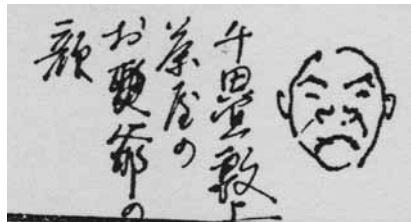 千田畳敷上
茶屋の
お爺の
顔